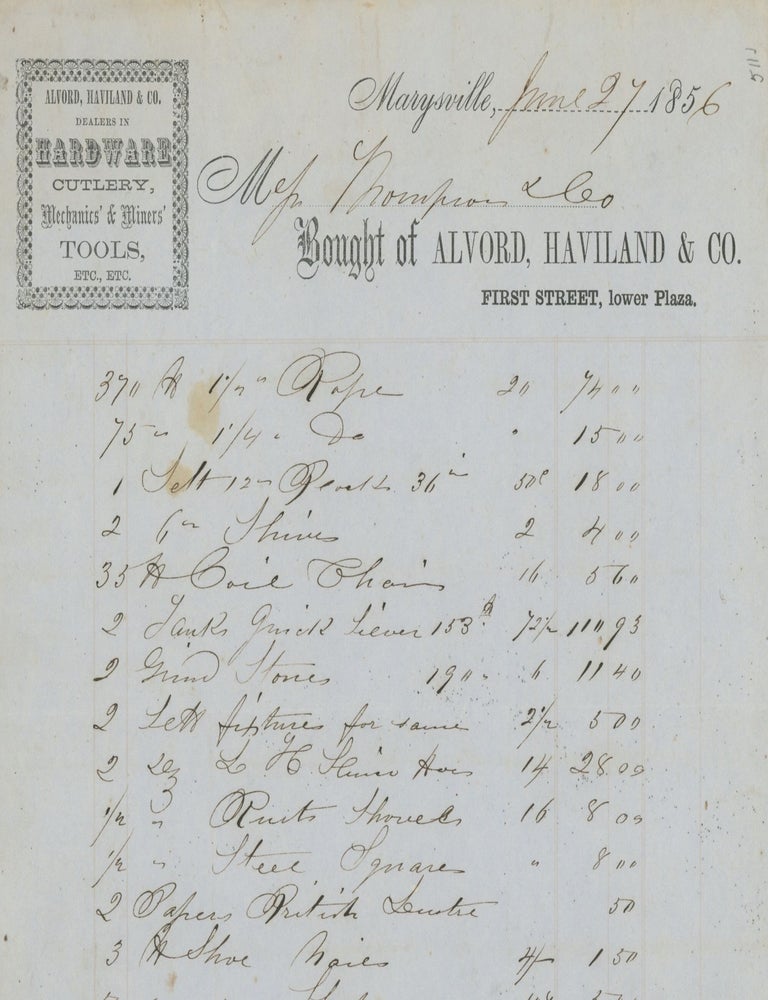 5115
ALVORD, HAVILAND & CO.
DEALERS IN
HARDWARE
CUTLERY,
Mechanics' & Miners'
TOOLS,
ETC., ETC.
Marysville, June 27 1856
Mess Thompson & Co
Bought of ALVORD, HAVILAND & CO.
FIRST STREET, lower Plaza.
370 lb 1 1/2 " Rope 20 74 00
75 " 1 1/4 " Do " 15 00
1 Sett 12 in Blocks 36 in 50c 18 00
2 6 in Shives 2 4 00
35 lb Coil Chain 16 5 60
2 Tanks Quick Silver 153 lb 72 1/2 110 93
2 Grind Stones 190 " 6 11 40
2 Sett fixtures for same 2 1/2 5 00
2 Dz L H Sluice Hoes 14 28 00
1/2 " Shovels 16 8 00
1/2 " Steel Squares " 8 00
2 Papers British Lustre 50
3 lb Shoe Nails 4/ 1 50